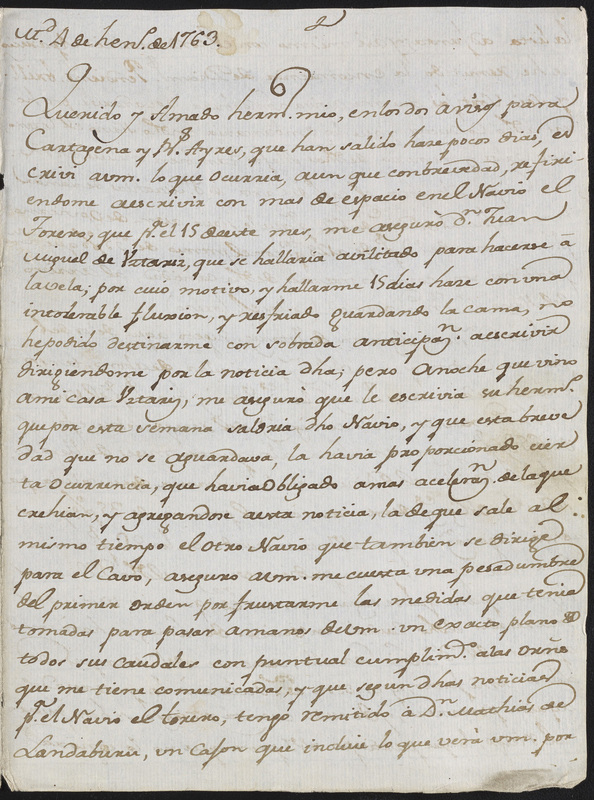 M.d 4 de hen.o de 1763.
Querido y Amado herm.o mio, en los dos avisos para
Cartagena y B.s Ayres, que han salido hace pocos dias, es
crivi a vm. lo que ocurria, aun que con brevedad, refirien
endome a escrivir con mas de espacio en el Navio el
Torero, que p.a el 15 de este mes, me aseguró D.n Juan
Miguel de Vztariz, que se hallaria avilitado para hacerse â
la vela; por cuio motivo, y hallarme 15 dias hace con una
intolerable fluxion, y resfriado guardando la cama, no
he podido destinarme con sobrada anticipaz.n a escrivir
dirigiendome por la noticia dha; pero Anoche que vino
a mi casa Vztariz, me aseguró que le escrivia su herm.o
que por esta semana saldria dho Navio, y que esta breve
dad que no se aguardava, la havia proporcionado cier
ta ocurrencia, que havia obligado a mas aceleraz.n de la que
crehian, y agregandose a esta noticia, la de que sale al
mismo tiempo el otro Navio que tambien se dirige
para el Cavo, aseguro a vm. me cuesta una pesadumbre
del primer orden por frustarme las medidas que tenia
tomadas para pasar a manos de vm. un exacto plano de
todos sus caudales con puntual cumplim.to a las ôrñs
que me tiene comunicadas, y que segun dhas noticias
p.a el Navio el torero, tengo remitido â D.n Mathias de
Landaburu, un Cajon que incluie lo que verà vm. por